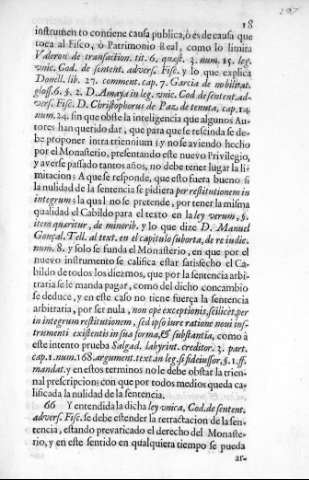 18
297
instrumento contiene causa publica, ò es de causa que
toca al Fisco, ò Patrimonio Real, como lo limita
Valeron de transaction. tit. 6. quæst. 3. num. 15. leg.
vnic. Cod. de sentent. advers. Fisc. y lo que explica
Donell. lib. 27. comment. cap. 7. Garcia de nobilitat.
gloss. 6. §. 2. D. Amaya in leg. vnic. Cod. de sentent. ad-
vers. Fisc. D. Christophorus de Paz de tenuta, cap. 14.
num. 24. sin que obste la inteligencia que algunos Au-
tores han querido dar, que para que se rescinda se de-
be proponer intra triennium; y no se aviendo hecho
por el Monasterio, presentando este nuevo Privilegio,
y averse passado tantos años, no debe tener lugar la li-
mitacion; A que se responde, que esto fuera bueno si
la nulidad de la sentencia se pidiera per restitutionem in
integrum; la qual no se pretende, por tener la misma
qualidad el Cabildo para el texto en la ley verum, §.
item quæritur, de minorib. y lo que dize D. Manuel
Gonçal. Tell. al text. en el capitulo suborta, de re iudic.
num. 8. y solo se funda el Monasterio, en que por el
nuevo instrumento se califica estar satisfecho el Ca-
bildo de todos los diezmos, que por la sentencia arbi-
traria se le manda pagar, como del dicho concambio
se deduce, y en este caso no tiene fuerça la sentencia
arbitraria, por ser nula, non ope exceptionis, scilicet, per
in integrum restitutionem, sed ipso iure ratione noui ins-
trumenti existentis in sua forma, & substantia, como à
este intento prueba Salgad. labyrint. creditor. 3. part.
cap. 1. num. 168. argument. text. in leg. si fideiussor, §. 1. ff.
mandat. y en estos terminos no le debe obstar la trien-
nal prescripcion; con que por todos medios queda ca-
lificada la nulidad de la sentencia.
66 Y entendida la dicha ley vnica, Cod. de sentent.
advers. Fisc. se debe estender la retractacion de la sen-
tencia, estando prevaricado el derecho del Monaste-
rio, y en este sentido en qualquiera tiempo se pueda
ar-